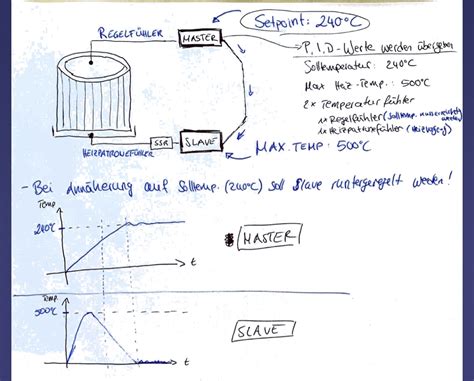 Setpoint: 240°C
REGELFÜHLER
MASTER
P, I, D-Werte werden übergeben
Solltemperatur: 240°C
Max Heiz-Temp.: 500°C
2x Temperaturfühler
1x Regelfühler
1x Heizpatronefühler
SSR
SLAVE
HEIZPATRONEFÜHLER
MAX. TEMP: 500°C
- Bei Annäherung auf Solltemp. (240°C) soll Slave runtergeregelt werden!
Temp
240°C
t
MASTER
Temp.
500°C
t
SLAVE